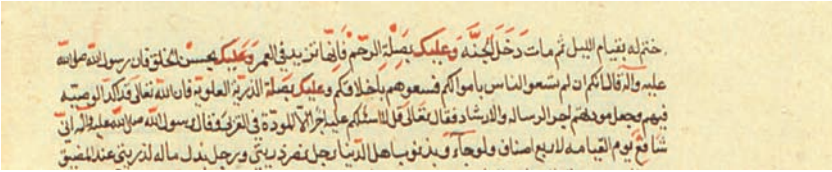 ختم له بقيام الليل ثم مات دخل الجنة وعليك بصلة الرحم فانها تزيد في العمر وعليك بحسن الخلق فان رسول الله صلى الله
عليه واله قال انكم ان لم تسعوا الناس باموالكم فسعوهم باخلاقكم وعليك بصلة الذرية العلوية فان الله تعالى قد اكد الوصية
فيهم وجعل مودتهم اجر الرسالة والارشاد فقال تعالى قل لا اسئلكم عليه اجرا الا المودة في القربى وقال رسول الله صلى الله عليه واله اني
شافع يوم القيامة لاربع اصناف ولو جاؤ بذنوب اهل الدنيا رجل نصر ذريتي ورجل بذل ماله لذريتي عند المضيق